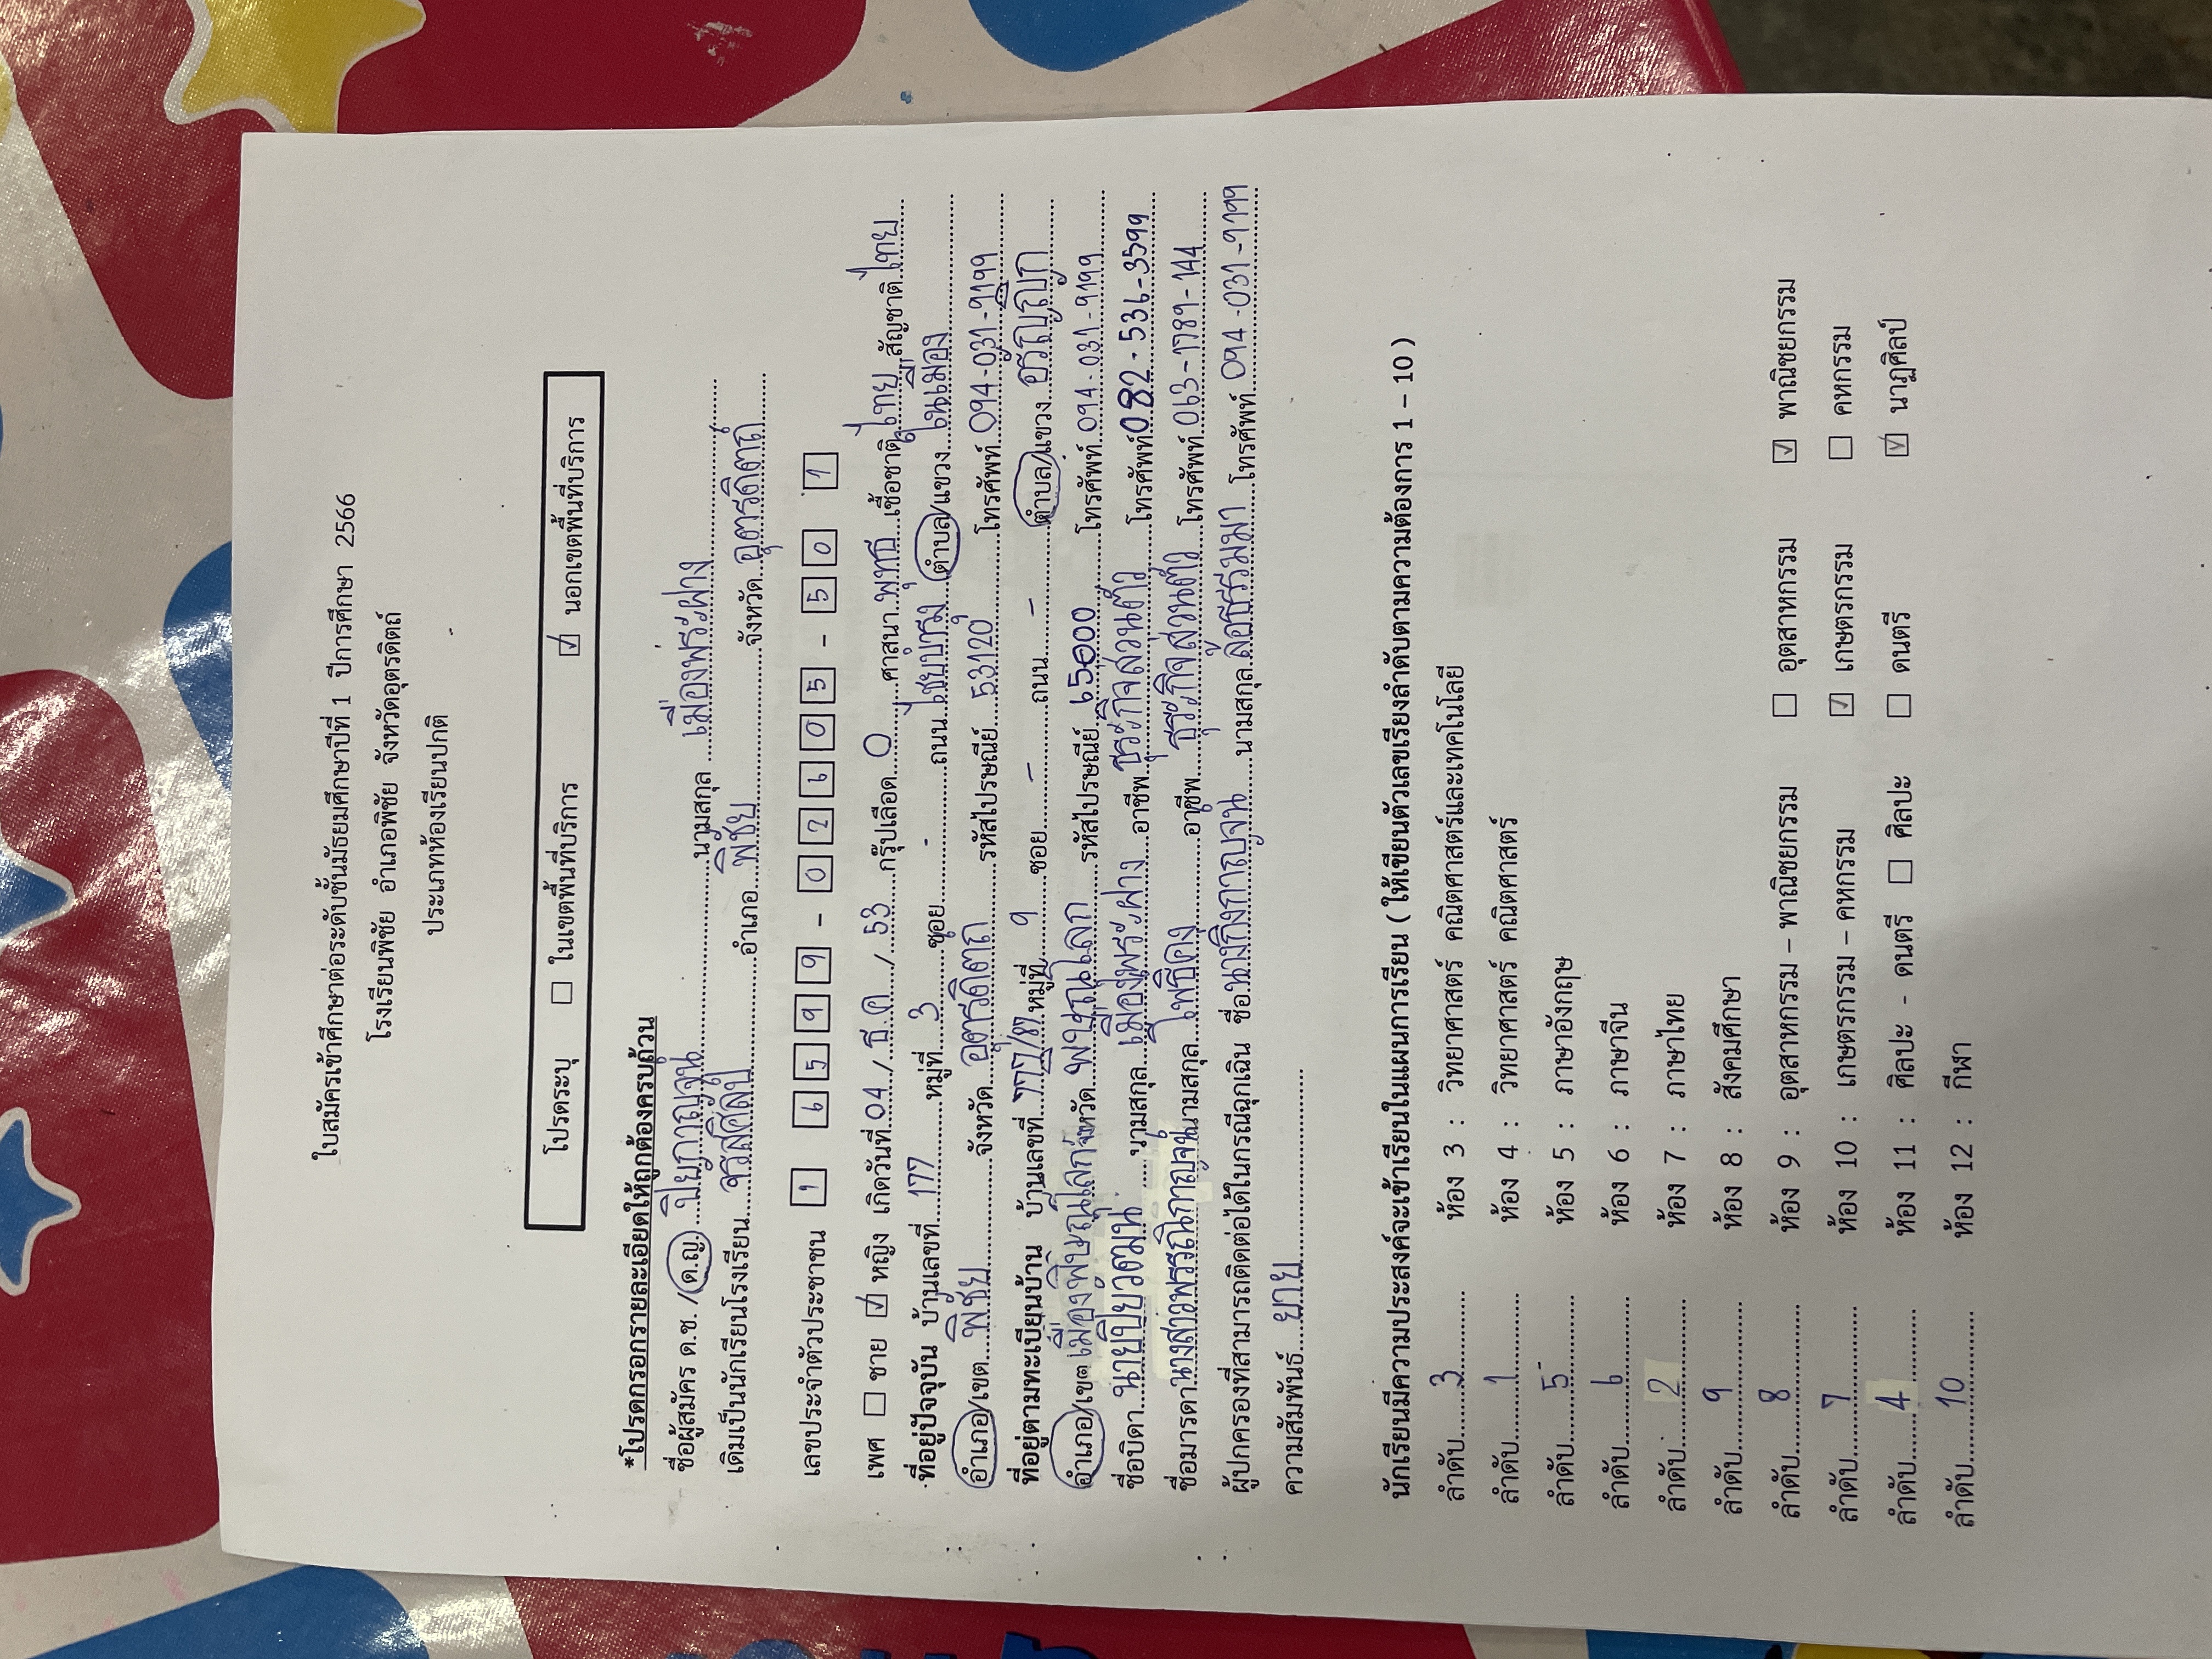 ใบสมัครเข้าศึกษาต่อระดับชั้นมัธยมศึกษาปีที่ 1 ปีการศึกษา 2566
โรงเรียนพิชัย อำเภอพิชัย จังหวัดอุตรดิตถ์
ประเภทห้องเรียนปกติ
โปรดระบุ ☐ ในเขตพื้นที่บริการ ☑ นอกเขตพื้นที่บริการ
*โปรดกรอกรายละเอียดให้ถูกต้องครบถ้วน
ชื่อผู้สมัคร ด.ช. /ด.ญ. ปิยกาญจน์ นามสกุล เมืองพระฝาง
เดิมเป็นนักเรียนโรงเรียน จรัสศิลป์ อำเภอ พิชัย จังหวัด อุตรดิตถ์
เลขประจำตัวประชาชน 1 6599 02605 50 1
เพศ ☐ ชาย ☑ หญิง เกิดวันที่ 04 / ธ.ค / 53 กรุ๊ปเลือด O ศาสนา พุทธ เชื้อชาติ ไทย สัญชาติ ไทย
ที่อยู่ปัจจุบัน บ้านเลขที่ 177 หมู่ที่ 3 ซอย - ถนน ตำบล/แขวง ในเมือง
อำเภอ/เขต พิชัย จังหวัด อุตรดิตถ์ รหัสไปรษณีย์ 53120 โทรศัพท์ 094-031-9199
ที่อยู่ตามทะเบียนบ้าน บ้านเลขที่ 777/87 หมู่ที่ 9 ซอย - ถนน - ตำบล/แขวง อรัญญิก
อำเภอ/เขต เมืองพิษณุโลก จังหวัด พิษณุโลก รหัสไปรษณีย์ 65000 โทรศัพท์ 094-031-9199
ชื่อบิดา นายปิยวัฒน์ นามสกุล เมืองพระฝาง อาชีพ ธุระกิจส่วนตัว โทรศัพท์ 082-536-3599
ชื่อมารดา นางสาวพรรณิกาญจน์ นามสกุล โพธิ์คง อาชีพ ธุระกิจส่วนตัว โทรศัพท์ 063-1789-144
ผู้ปกครองที่สามารถติดต่อได้ในกรณีฉุกเฉิน ชื่อ นางกิ่งกาญจน์ นามสกุล ล้อธรรมมา โทรศัพท์ 094-031-9199
ความสัมพันธ์ ยาย
นักเรียนมีความประสงค์จะเข้าเรียนในแผนการเรียน ( ให้เขียนตัวเลขเรียงลำดับตามความต้องการ 1 – 10 )
ลำดับ 3 ห้อง 3 : วิทยาศาสตร์ คณิตศาสตร์และเทคโนโลยี
ลำดับ 1 ห้อง 4 : วิทยาศาสตร์ คณิตศาสตร์
ลำดับ 5 ห้อง 5 : ภาษาอังกฤษ
ลำดับ 6 ห้อง 6 : ภาษาจีน
ลำดับ 2 ห้อง 7 : ภาษาไทย
ลำดับ 9 ห้อง 8 : สังคมศึกษา
ลำดับ 8 ห้อง 9 : อุตสาหกรรม – พาณิชยกรรม ☐ อุตสาหกรรม ☑ พาณิชยกรรม
ลำดับ 7 ห้อง 10 : เกษตรกรรม – คหกรรม ☑ เกษตรกรรม ☐ คหกรรม
ลำดับ 4 ห้อง 11 : ศิลปะ - ดนตรี ☐ ศิลปะ ☐ ดนตรี ☑ นาฏศิลป์
ลำดับ 10 ห้อง 12 : กีฬา